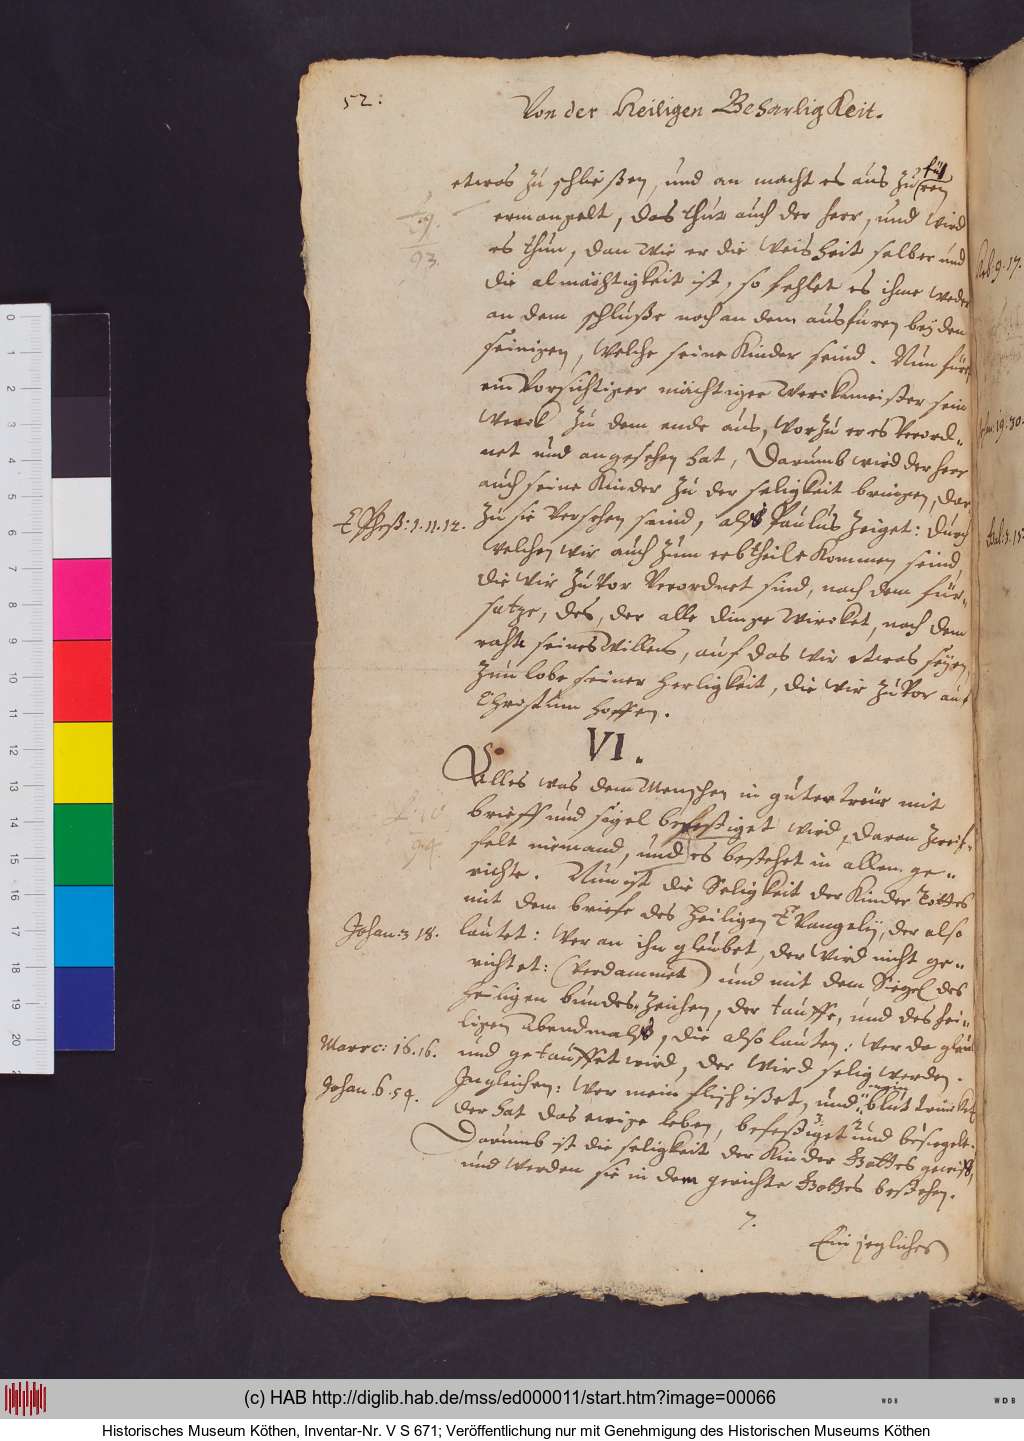 52:
Von der Heiligen Beharligkeit.
etwas zu schließen, und an macht es aus zu füh
ren
ermangelt, das thut auch der herr, und wird
es thun, dan wie er die Weisheit selber und
die almächtigkeit ist, so fehlet es ihme weder
an dem schluße noch an dem ausfüren bey den
seinigen, welche seine Kinder seind. Nun fürt
ein Vorsichtiger mächtiger Werckmeister sein
Werck zu dem ende aus, worzu er es Verord-
net und angesehen hat, Darumb wird der herr
auch seine Kinder zu der seligkeit bringen, dar
Epheß: 1.11.12.
zu sie Versehen seind, als Paulus zeiget: durch
welchen wir auch zum erbtheile Kommen seind
die wir zuvor Verordnet sind, nach dem für-
satze, des, der alle dinge wircket, nach dem
rahte seines Willens, auf das wir etwas seyen
zum lobe seiner Herligkeit, die wir zuvor auf
Christum hoffen.
VI.
Alles was dem Menschen in guter treue mit
brieff und sigel befestiget wird, daran zweif-
felt niemand, und es bestehet in allem ge-
richte. Nun ist die Seligkeit der Kinder Gottes
mit dem briefe des Heiligen Evangelij, der also
Johan: 3 18.
lautet: Wer an ihn gleubet, der wird nicht ge-
richtet: (verdammet) und mit dem Siegel des
heiligen bundes-zeichen, der tauffe, und des hei-
ligen abendmals, die also lauten: Wer da gleubt
Marrc: 16.16.
und getauffet wird, der wird selig werden.
Johan 6. 54.
Ingleichen: Wer mein flisch ißet, und mein blut trincket
der hat das ewige leben, befestiget und besiegelt.
Darumb ist die seligkeit der Kinder Gottes gewiß,
und werden sie in dem gerichte Gottes bestehen.
7.
Ein jegliches
9.
93.
94.
9. 17.
19. 30.
0 1 2 3 4 5 6 7 8 9 10 11 12 13 14 15 16 17 18 19 20
(c) HAB http://diglib.hab.de/mss/ed000011/start.htm?image=00066
WDB
WDB
Historisches Museum Köthen, Inventar-Nr. V S 671; Veröffentlichung nur mit Genehmigung des Historischen Museums Köthen